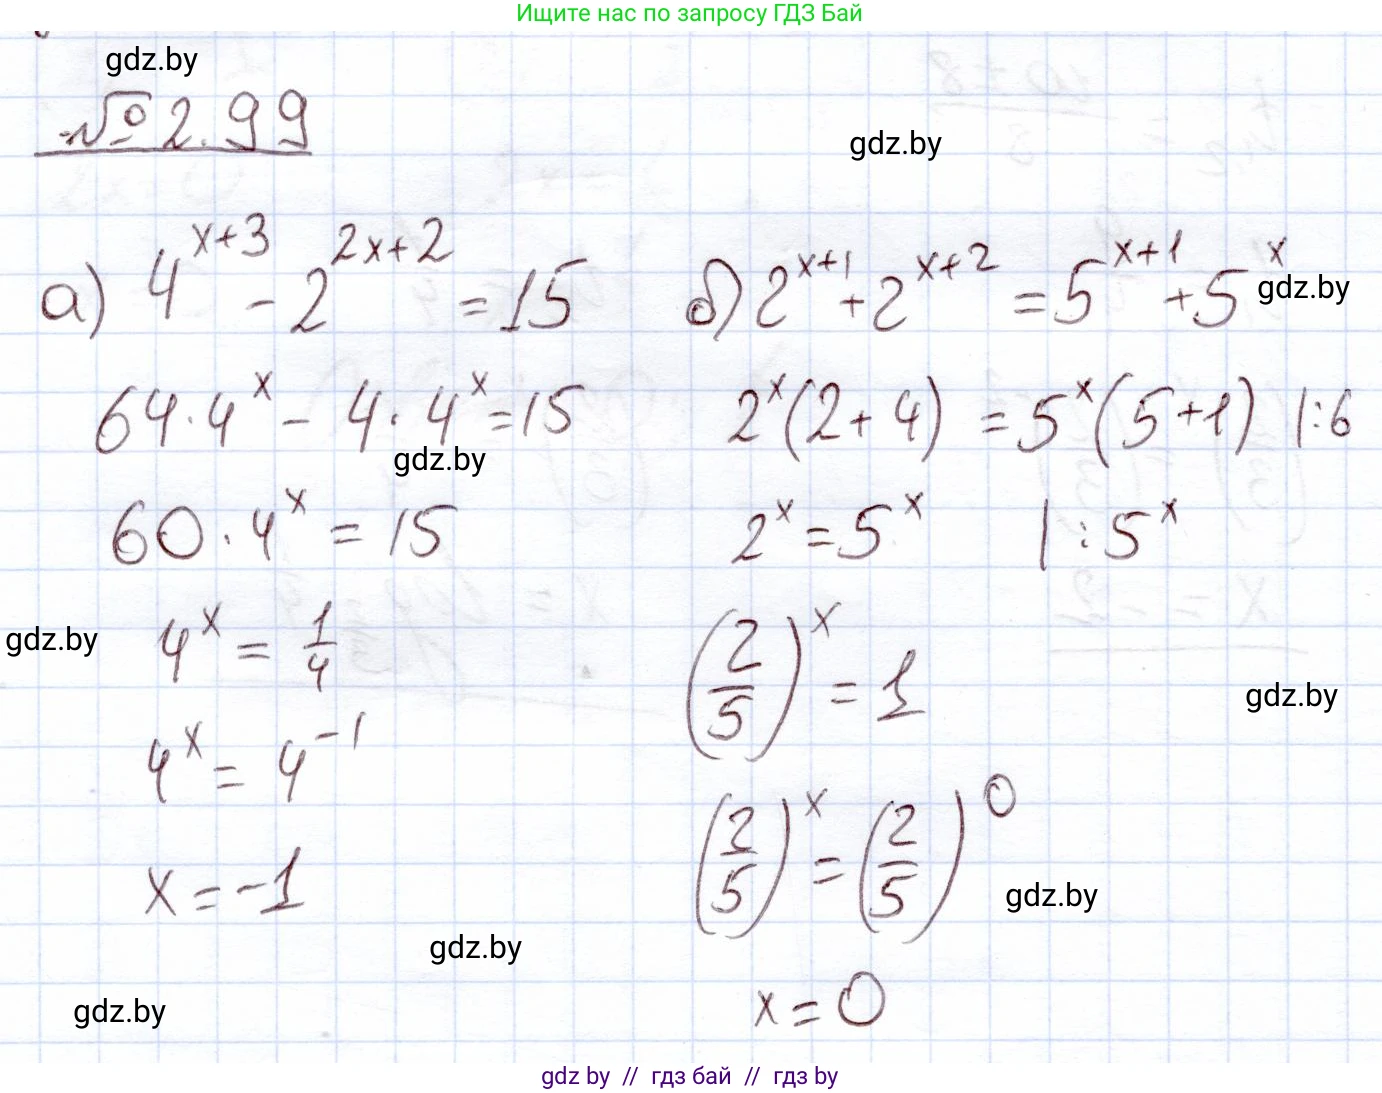 Ищите нас по запросу ГДЗ Бай
gdz.by
№ 2.99
gdz.by
а) 4^{x+3} - 2^{2x+2} = 15
64·4^x - 4·4^x = 15
gdz.by
60·4^x = 15
gdz.by
4^x = 1/4
4^x = 4^{-1}
x = -1
gdz.by
gdz.by
б) 2^{x+1} + 2^{x+2} = 5^{x+1} + 5^x
gdz.by
2^x(2+4) = 5^x(5+1) |:6
2^x = 5^x |:5^x
(2/5)^x = 1
gdz.by
(2/5)^x = (2/5)^0
gdz.by
x = 0
gdz by // гдз бай // гдз by